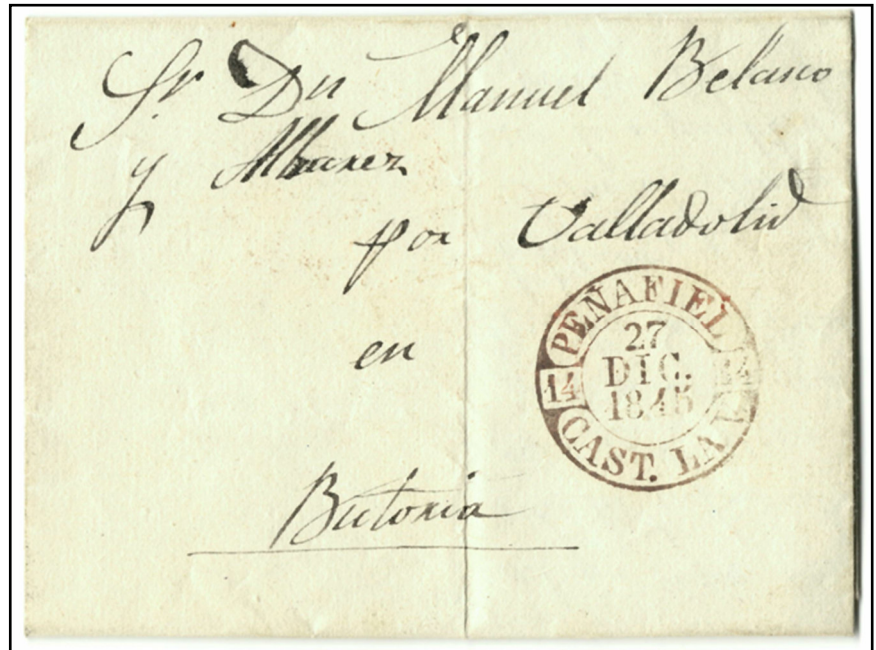 Sr. Dn Manuel Belasco
y Albarez
por Valladolid
en
Bitoria
PEÑAFIEL
27
DIC.
1845
14
CAST. LA V.